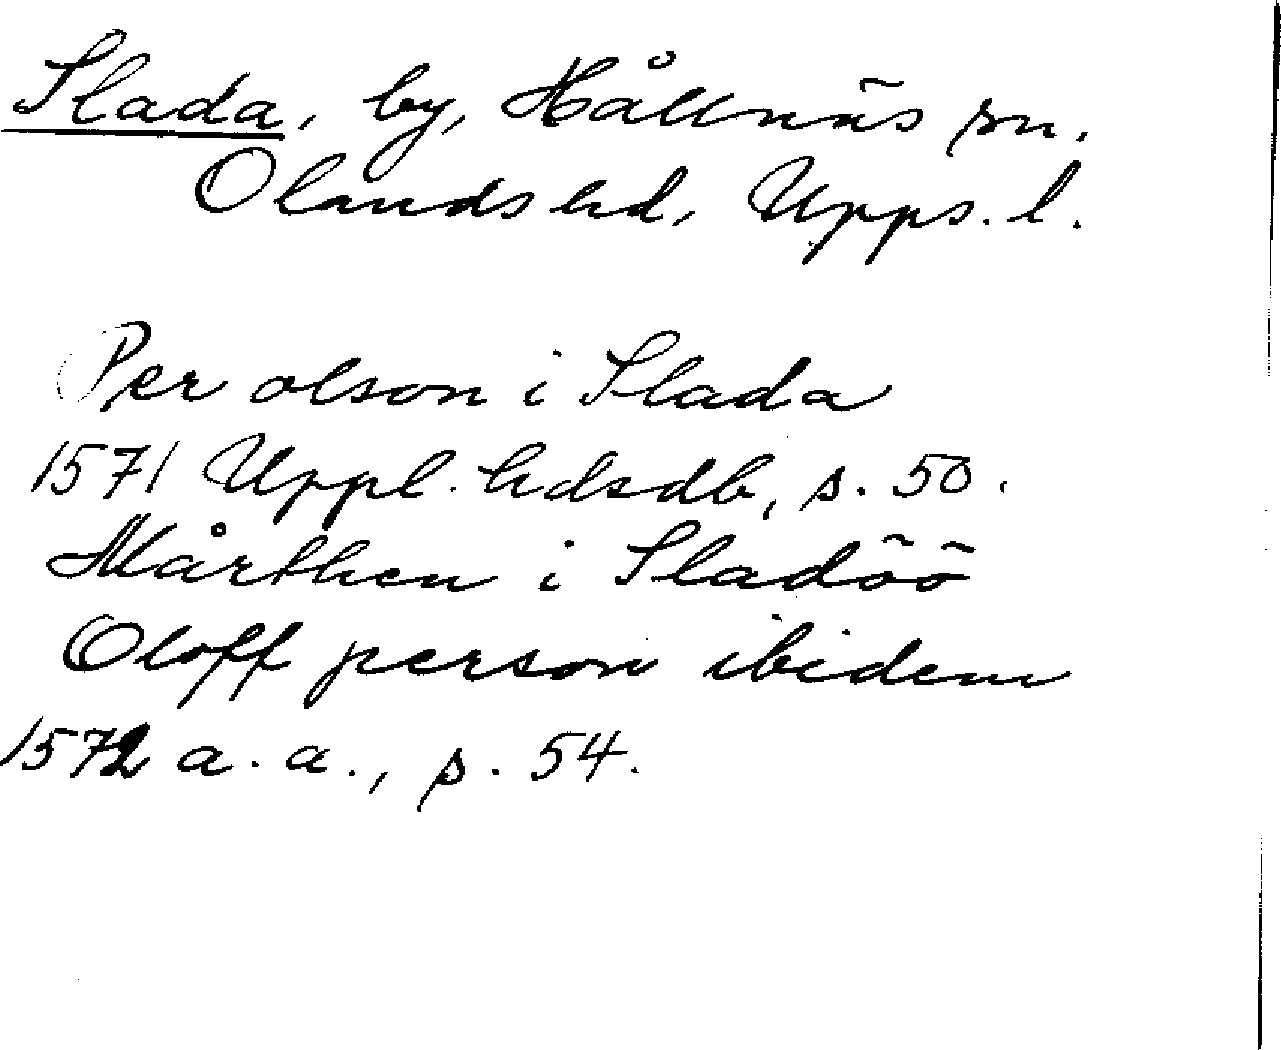 Slada, by, Hållnäs sn.
Olands hd, Upps. l.
Per olson i Slada
1571 Uppl. hdsdb, s. 50.
Mårthen i Sladöö
Oloff person ibidem
1572 a. a., s. 54.